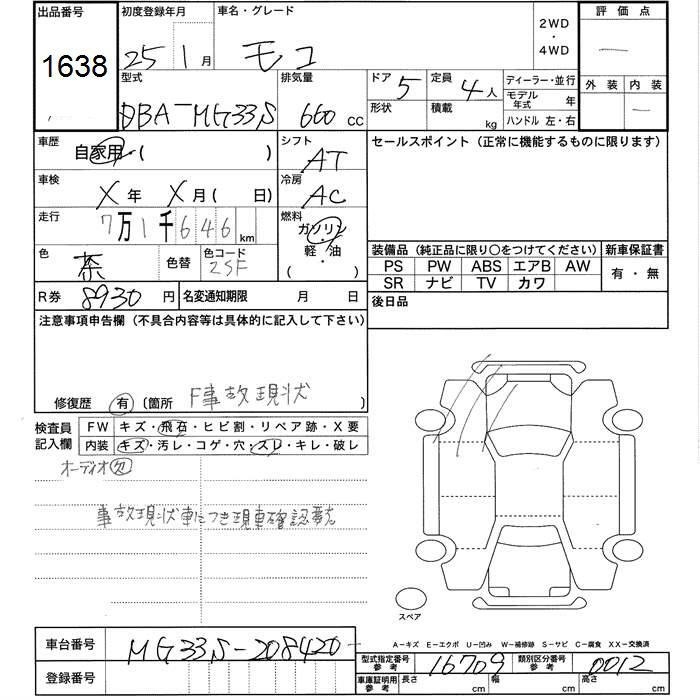 出品番号 初度登録年月 車名・グレード 2WD ・ 4WD 評価点
1638 25 1月 モコ —
外装 内装
—
型式 排気量 ドア 5 定員 4人 ディーラー・並行
DBA-MG33S 660 CC 形状 積載 kg モデル年式 年
ハンドル 左・右
車歴 自家用 ( ) シフト AT セールスポイント (正常に機能するものに限ります)
車検 X年 X月 ( 日) 冷房 AC
走行 7万1千646 km 燃料 ガソリン
軽・油
( )
色 茶 色替 色コード 25F
装備品 (純正品に限り○をつけてください) 新車保証書
PS PW ABS エアB AW 有・無
SR ナビ TV カワ
R券 8930円 名変通知期限 月 日 後日品
注意事項申告欄 (不具合内容等は具体的に記入して下さい)
修復歴 有 (箇所 F事故現状
検査員記入欄 FW キズ・飛石・ヒビ割・リペア跡・X要
内装 キズ・汚レ・コゲ・穴・スレ・キレ・破レ
オーディオ欠
事故現状車につき現車確認要
スペア
A-キズ E-エクボ U-凹み W-補修跡 S-サビ C-腐食 XX-交換済
車台番号 MG33S-208420
登録番号
型式指定番号 参考 16709 類別区分番号 参考 0012
車庫証明用 参考 長さ cm 幅 cm 高さ cm